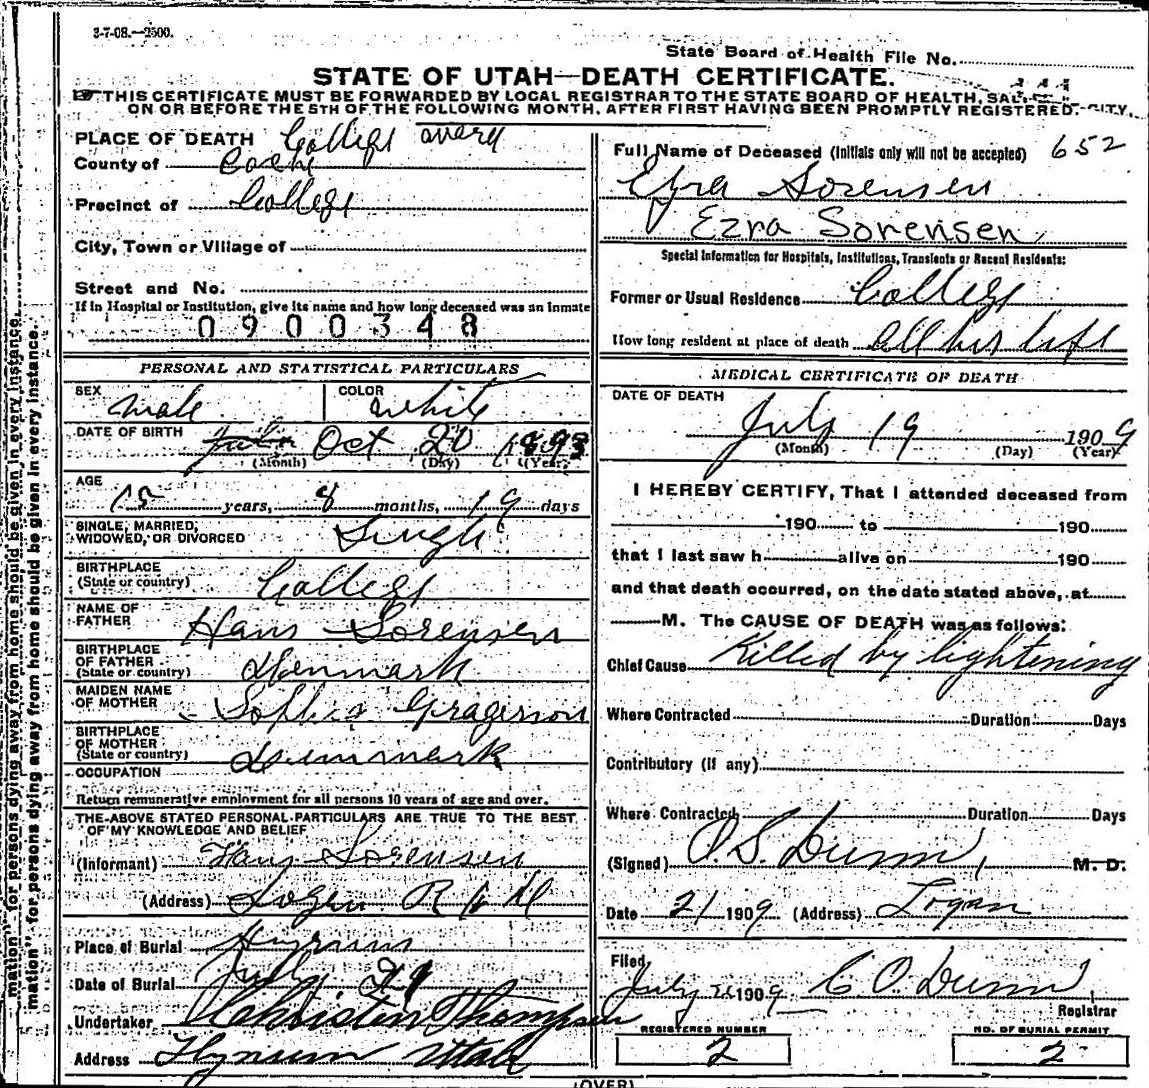 3-7-08.—2500.
State Board of Health File No.
STATE OF UTAH—DEATH CERTIFICATE.
THIS CERTIFICATE MUST BE FORWARDED BY LOCAL REGISTRAR TO THE STATE BOARD OF HEALTH, SALT CITY,
ON OR BEFORE THE 5TH OF THE FOLLOWING MONTH, AFTER FIRST HAVING BEEN PROMPTLY REGISTERED.
PLACE OF DEATH College Ward
County of Cache
Precinct of College
City, Town or Village of
Street and No.
If in Hospital or Institution, give its name and how long deceased was an inmate
0900348
Full Name of Deceased (Initials only will not be accepted) 652
Ezra Sorensen
Ezra Sorensen
Special Information for Hospitals, Institutions, Transients or Recent Residents:
Former or Usual Residence College
How long resident at place of death all his life
PERSONAL AND STATISTICAL PARTICULARS
SEX male
COLOR white
DATE OF BIRTH Oct 20 1893
(Month) (Day) (Year)
AGE 15 years, 8 months, 19 days
SINGLE, MARRIED,
WIDOWED, OR DIVORCED Single
BIRTHPLACE
(State or country) College
NAME OF
FATHER Hans Sorensen
BIRTHPLACE
OF FATHER
(State or country) Denmark
MAIDEN NAME
OF MOTHER Sophia Gragerson
BIRTHPLACE
OF MOTHER
(State or country) Denmark
OCCUPATION
Return remunerative employment for all persons 10 years of age and over.
THE ABOVE STATED PERSONAL PARTICULARS ARE TRUE TO THE BEST
OF MY KNOWLEDGE AND BELIEF
(Informant) Hans Sorensen
(Address) Logan R
Place of Burial Hyrum
Date of Burial July 21
Undertaker Christen Thompsen
Address Hyrum Utah
MEDICAL CERTIFICATE OF DEATH
DATE OF DEATH
July 19 1909
(Month) (Day) (Year)
I HEREBY CERTIFY, That I attended deceased from
190 to 190
that I last saw h alive on 190
and that death occurred, on the date stated above, at
M. The CAUSE OF DEATH was as follows:
Chief Cause Killed by lightening
Where Contracted Duration Days
Contributory (if any)
Where Contracted Duration Days
(Signed) O. S. Dunn, M. D.
Date 21 1909 (Address) Logan
Filed, July 21 1909 C O. Dunn
Registrar
REGISTERED NUMBER
2
NO. OF BURIAL PERMIT
2
(OVER)
mation" for persons dying away from home should be given in every instance.
mation" for persons dying away from home should be given in every instance.